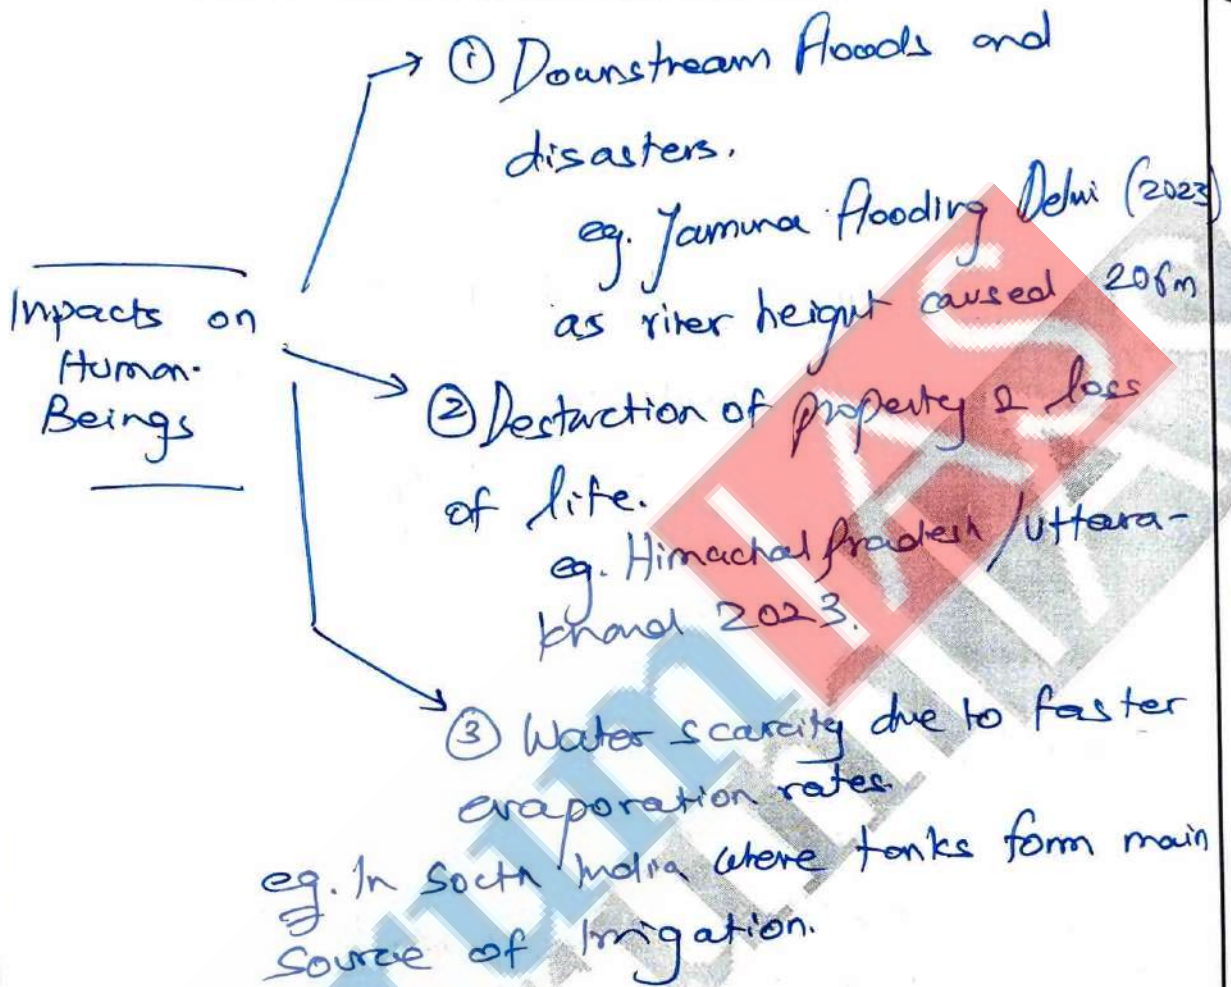 Impacts on
Human
Beings
① Downstream floods and
disasters.
eg. Yamuna flooding Delhi (2023)
as river height caused 206m
② Destruction of property & loss
of life.
eg. Himachal Pradesh / Uttara-
khand 2023.
③ Water scarcity due to faster
evaporation rates.
eg. In South India where tanks form main
source of Irrigation.
IAS
rum